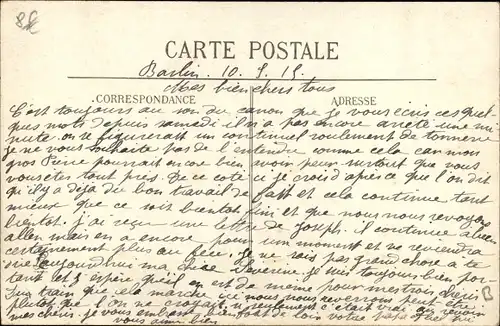 CARTE POSTALE
Barlin. 10.5.15
Mes bien chers tous
CORRESPONDANCE ADRESSE
C'est toujours au son du canon que je vous écris ces quel-
ques mots depuis samedi il n'a pas encore arrêté une mi-
nute. on se figurerait un continuel roulement de tonnerre
je ne vous souhaite pas de l'entendre comme cela car mon
gros Pierre pourrait encore bien avoir peur surtout que vous
vous êtes tout près. De ce côté ci je crois d'après ce que l'on dit
qu'il y a déjà du bon travail de fait et cela continue tant
mieux que ce soit bientôt fini et que nous revoyons
bientôt. j'ai reçu une lettre de Joseph. il continue à
aller mais en a encore pour un moment et ne reviendra
certainement plus au feu. Je ne sais pas grand chose à te
dire aujourd'hui ma chère je suis toujours bien por-
tant et j'espère qu'il en est de même pour mes trois chéris
Du train que cela marche nous nous reverrons peut être
plutôt que l'on ne croyait. c'était vrai au revoir
mes chéris. je vous embrasse bien fort de loin votre papa qui
vous aime bien